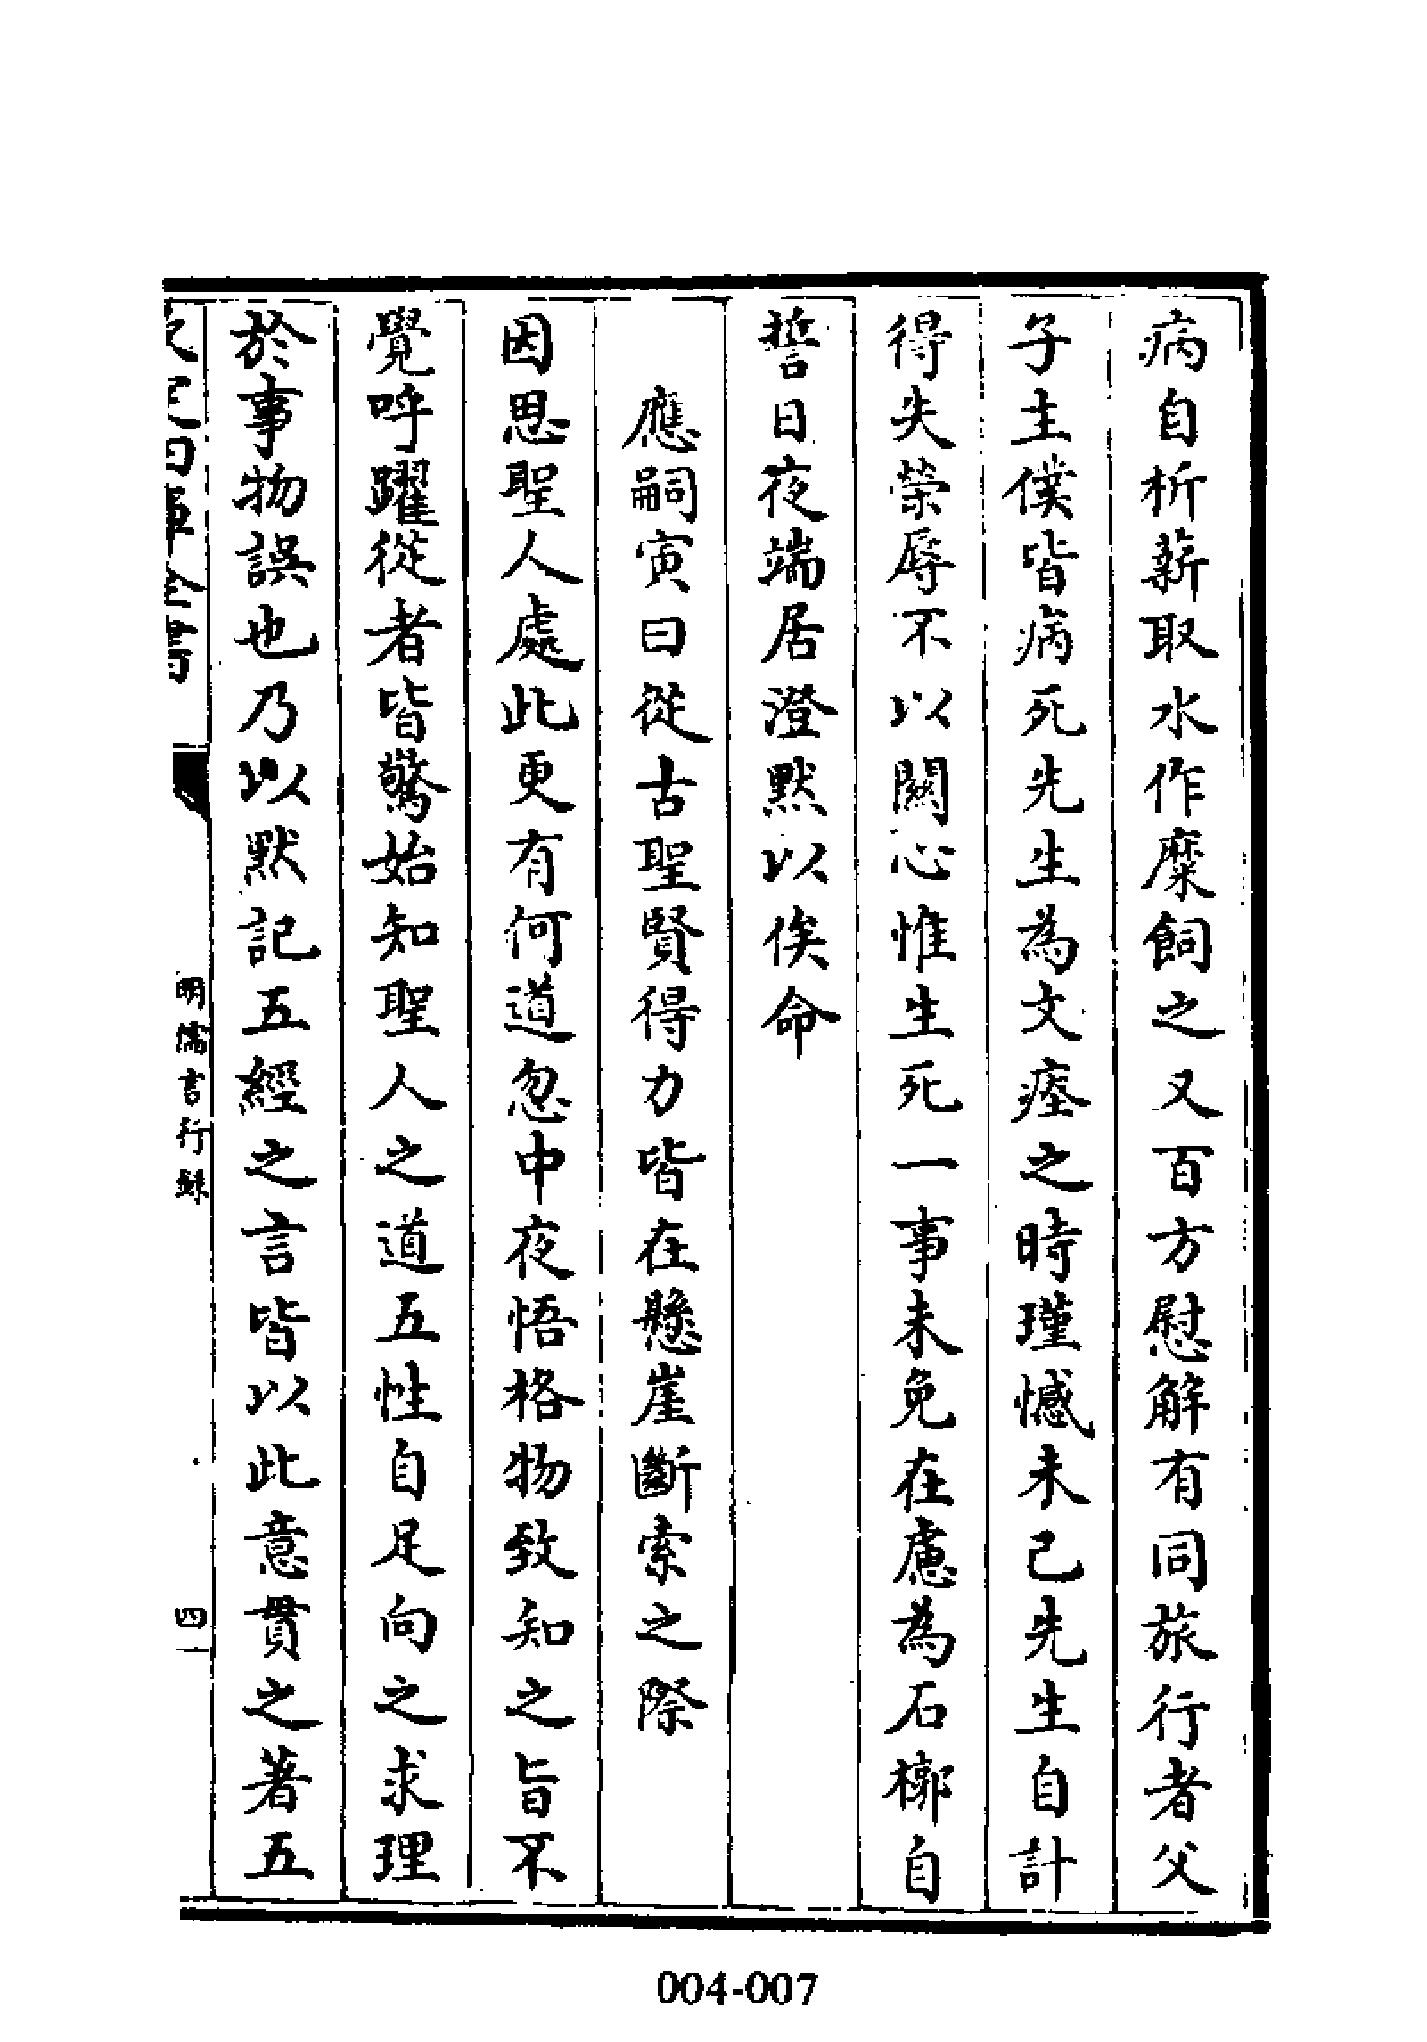 病自析薪取水作糜飼之又百方慰解有同旅行者父
子主僕皆病死先生為文瘞之時瑾憾未已先生自計
得失榮辱不以關心惟生死一事未免在慮為石槨自
誓日夜端居澄默以俟命
應嗣寅曰從古聖賢得力皆在懸崖斷索之際
因思聖人處此更有何道忽中夜悟格物致知之旨不
覺呼躍從者皆驚始知聖人之道五性自足向之求理
於事物誤也乃以默記五經之言皆以此意貫之著五
欽定四庫全書
明儒言行錄
四一
004-007